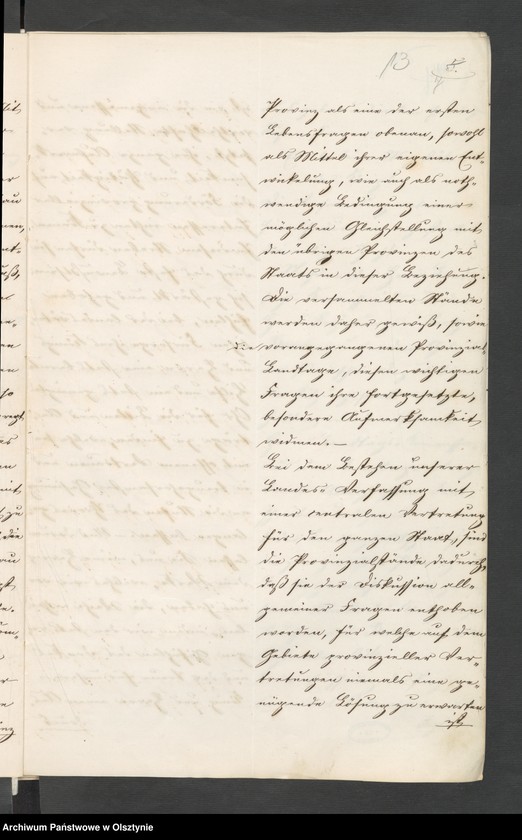 13
5.
Provinz als eine der ersten
Lebensfragen obenan, sowohl
als Mittel ihrer eigenen Ent-
wickelung, wie auch als noth-
wendige Bedingung einer
möglichen Gleichstellung mit
den übrigen Provinzen des
Staats in dieser Beziehung.
Die versammelten Stände
werden daher gewiß, sowie
die vorangegangenen Provinzial-
Landtage, diesen wichtigen
Fragen ihre fortgesetzte,
besondere Aufmerksamkeit
widmen. —
Bei dem Bestehen unserer
Landes-Verfassung mit
einer centralen Vertretung
für den ganzen Staat, sind
die Provinzialstände dadurch,
daß sie der Diskussion all-
gemeiner Fragen enthoben
worden, für welche auf dem
Gebiete provinzieller Ver-
tretungen niemals eine ge-
nügende Lösung zu erwarten
ist,
Archiwum Państwowe w Olsztynie